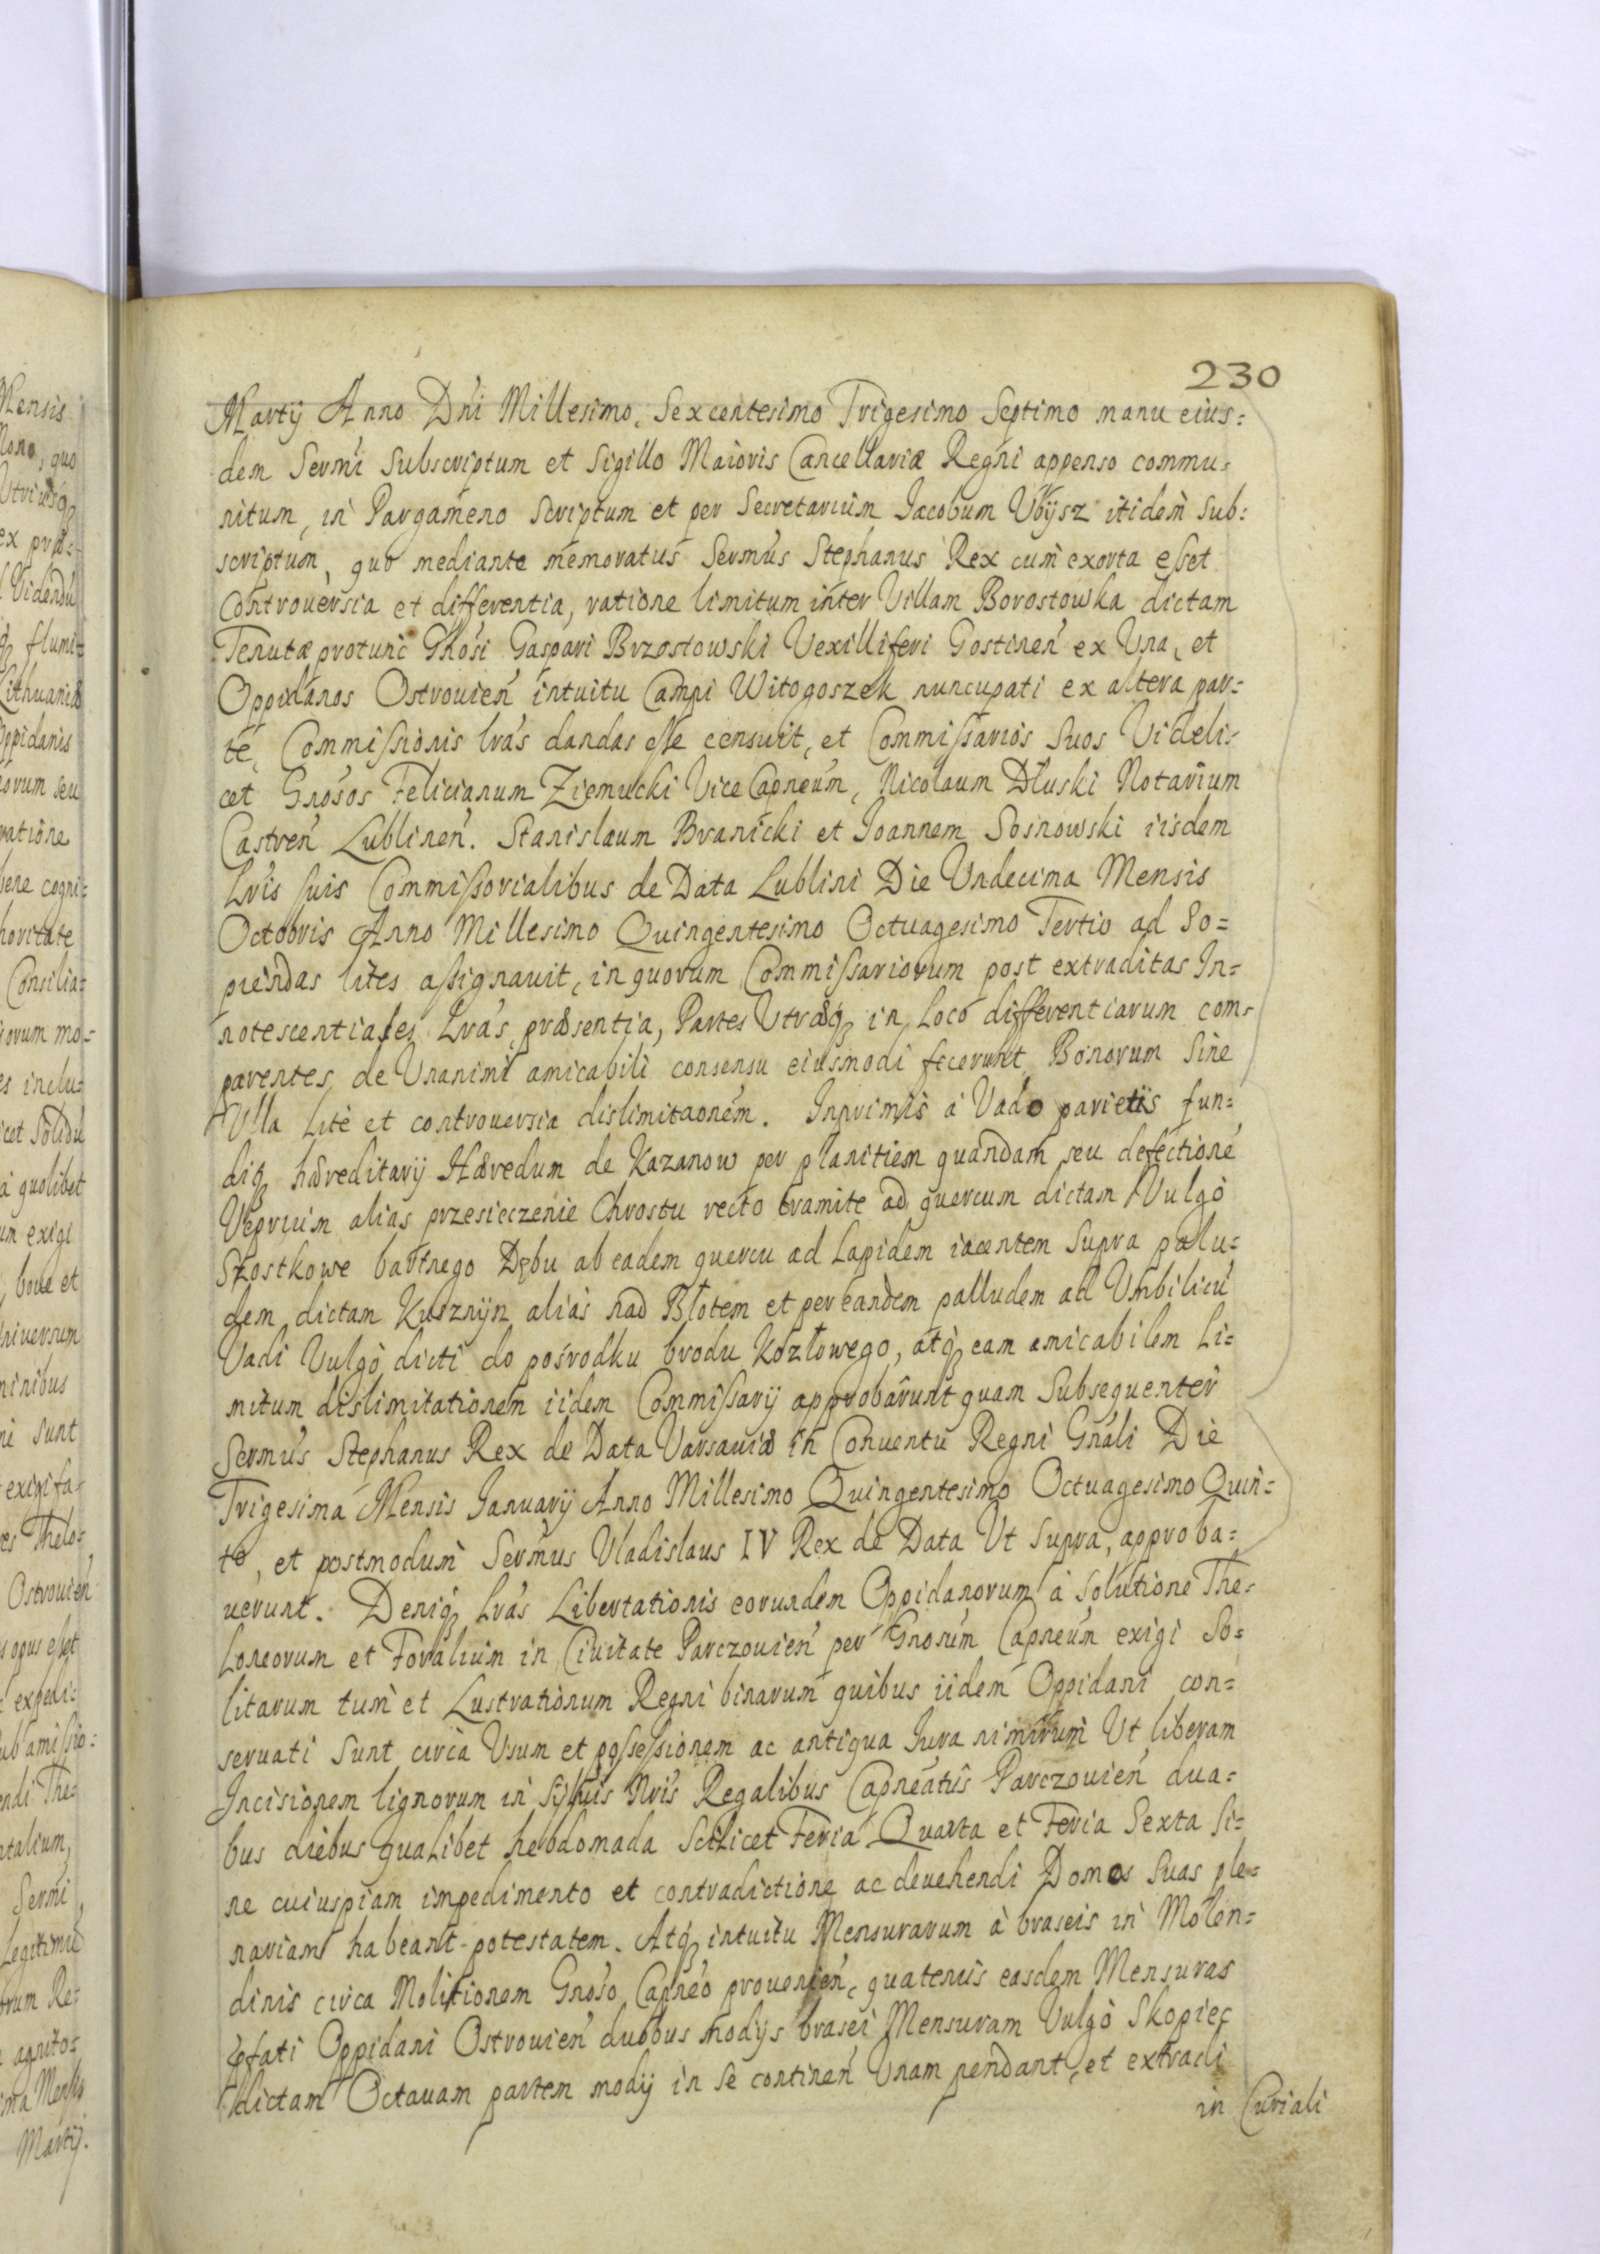 230
Martij Anno Dni Millesimo, Sexcentesimo Trigesimo Septimo manu eius=
dem Sermi Subscriptum et Sigillo Maioris Cancellariæ Regni appenso commu=
nitum, in Pargameno Scriptum et per Secretarium Jacobum Vbÿsz itidem Sub=
scriptum, quo mediante memoratus Sermus Stephanus Rex cum exorta esset
Controuersia et differentia, ratione limitum inter Villam Borostowka dictam
Tenutæ protunc Gnosi Gaspari Brzostowski Vexilliferi Gostinen ex Vna, et
Oppidanos Ostrouien intuitu Campi Witogoszek nuncupati ex altera par=
te, Commissionis lras dandas esse censuit, et Commissarios Suos Videli=
cet Gnosos Felicianum Ziemucki Vice Capneum, Nicolaum Dłuski Notarium
Castren Lublinen. Stanislaum Branicki et Joannem Sosnowski iisdem
Lris suis Commissorialibus de Data Lublini Die Vndecima Mensis
Octobris Anno Millesimo Quingentesimo Octuagesimo Tertio ad So=
piendas lites assignauit, in quorum Commissariorum post extraditas In=
notescentiales Lras, præsentia, Partes Vtræq in Loco differentiarum com=
parentes, de Vnanimi amicabili consensu eiusmodi fecerunt Bonorum Sine
Vlla Lite et controuersia dislimitaonem. Inprimis à Vado parietis fun=
diq hæreditarij Hæredum de Kazanow per planitiem quandam seu defectione
Veprium alias przesieczenie Chrostu recto tramite ad quercum dictam Vulgò
Szostkowe bartnego Dębu ab eadem quercu ad Lapidem iacentem Supra palu=
dem dictam Kusznijn alias nad Błotem et per eandem palludem ad Vmbilicu
Vadi Vulgò dicti do pośrodku brodu Kozłowego, atq eam amicabilem Li=
mitum dislimitationem iidem Commissarij approbârunt quam Subsequenter
Sermus Stephanus Rex de Data Varsauiæ in Conuentu Regni Gnali Die
Trigesima Mensis Januarij Anno Millesimo Quingentesimo Octuagesimo Quin=
to, et postmodum Sermus Vladislaus IV Rex de Data Vt Supra, approba=
uerunt. Deniq Lras Libertationis eorundem Oppidanorum à Solutione The=
Loneorum et Foralium in Ciuitate Parczouien per Gnosum Capneum exigi So=
litarum tum et Lustrationum Regni binarum quibus iidem Oppidani con=
seruati Sunt circa Vsum et possessionem ac antiqua Jura nimirum Vt liberam
Incisionem lignorum in Syluis Nris Regalibus Capneatus Parczouien dua=
bus diebus qualibet hebdomada Scilicet Feria Quarta et Feria Sexta Si=
ne cuiuspiam impedimento et contradictione ac deuehendi Domos Suas ple=
nariam habeant potestatem. Atq intuitu Mensurarum à braseis in Molen=
dinis circa Molitionem Gnoso Capneo prouenien, quatenus easdem Mensuras
pfati Oppidani Ostrouien duobus modijs brasei Mensuram Vulgò Skopiec
dictam Octauam partem modij in Se continen Vnam pendant, et extradi
in Curiali